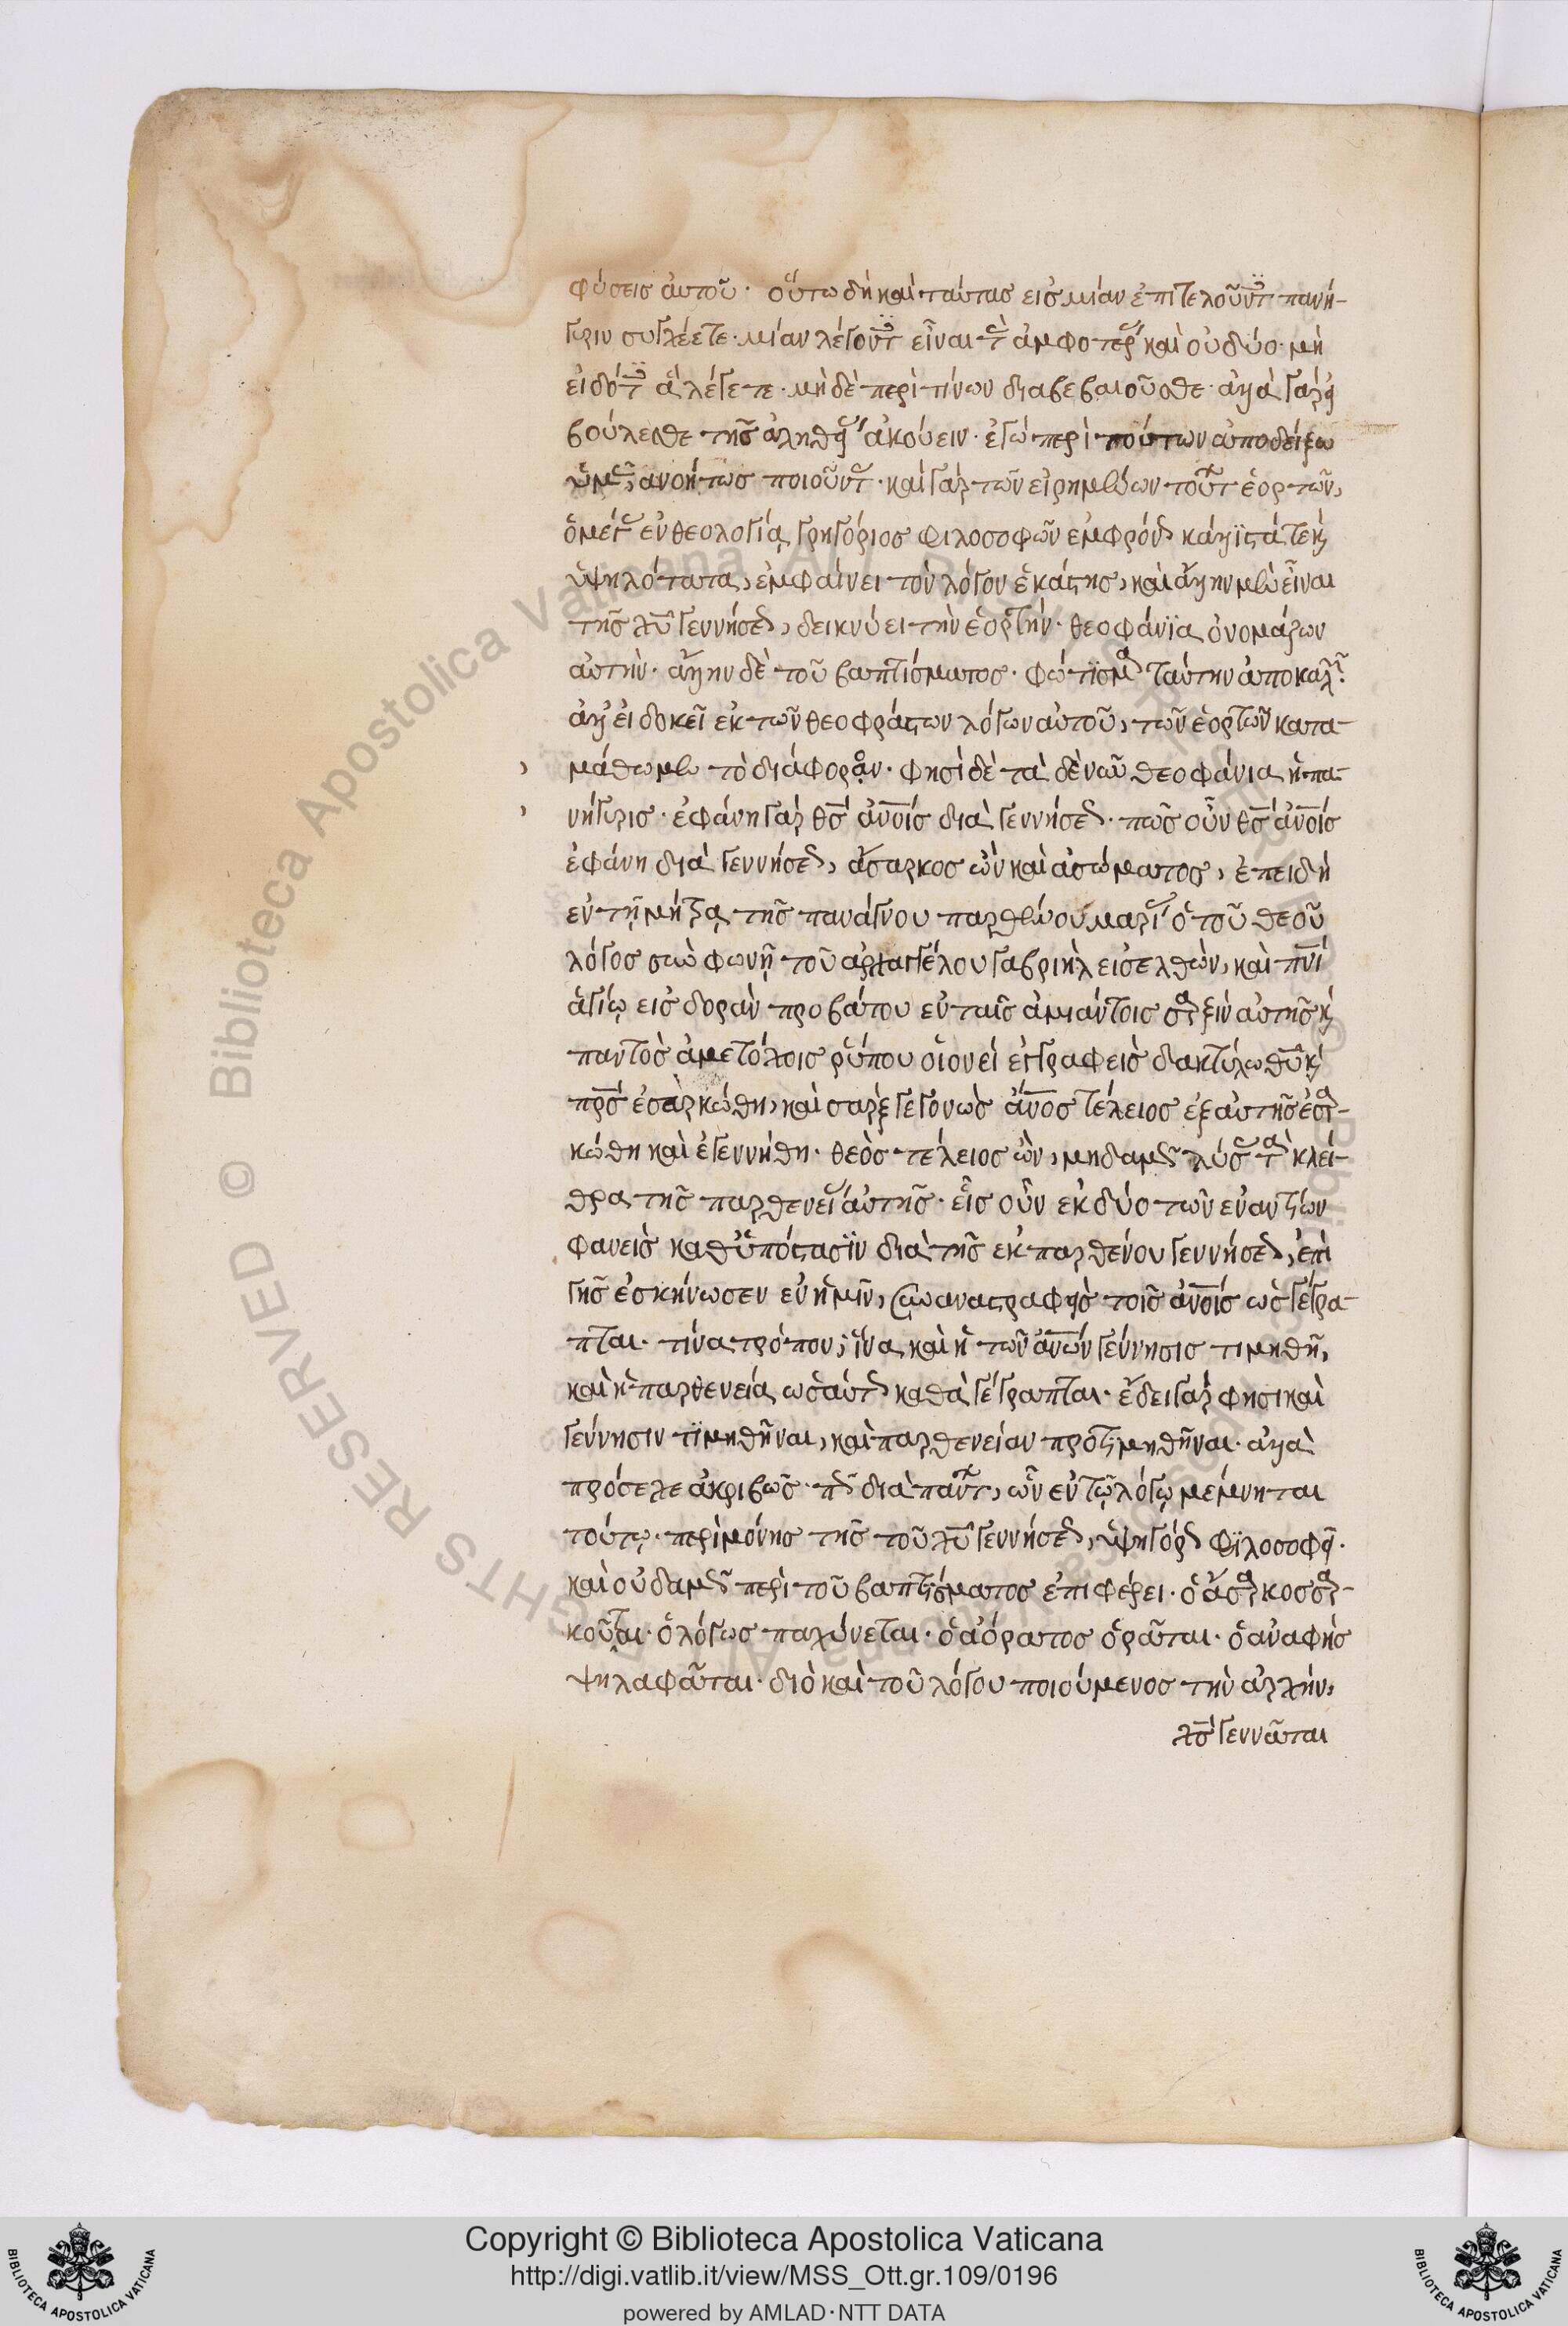 φύσεις αὐτοῦ· οὕτω δὴ καὶ ταύτας εἰς μίαν ἐπιτελοῦντ πανή-
γυριν συγχέετε· μίαν λέγοντ εἶναι τ ἀμφοτερ καὶ οὐ δύο· μὴ
εἰδότ ἃ λέγετε· μὴ δὲ περὶ τίνων διαβεβαιοῦσθε· ἀλλὰ γὰρ εἰ
βούλεσθε τῆς ἀληθεί ἀκούειν· ἐγὼ περὶ τούτων ἀποδείξω
ὑμᾶς, ἀνοήτως ποιοῦντ· καὶ γὰρ τῶν εἰρημένων τούτ ἑορτῶν,
ὁ μέγ ἐν θεολογία γρηγόριος φιλοσοφῶν ἐμφρόν κάλλιστά τε καὶ
ὑψηλότατα, ἐμφαίνει τὸν λόγον ἑκάστης, καὶ ἄλλην μὲν εἶναι
τῆς χῦ γεννήσε, δεικνύει τὴν ἑορτήν· θεοφάνϊα ὀνομάζων
αὐτὴν· ἄλλην δὲ τοῦ βαπτίσματος· φώτϊσμα ταύτην ἀποκαλ·
ἀλλ' εἰ δοκεῖ ἐκ τῶν θεοφράστων λόγων αὐτοῦ, τῶν ἑορτῶν κατα-
μάθωμεν τὸ διάφορον· φησὶ δὲ τὰ δὲ νῦν θεοφάνια ἡ πα-
νήγυρις· ἐφάνη γὰρ θς ἀνοις διὰ γεννήσε· πῶς οὖν θς ἀνοις
ἐφάνη διὰ γεννήσε, ἄσαρκος ὢν καὶ ἀσώματος, ἐπειδὴ
ἐν τῇ μήτρα τῆς πανάγνου παρθένου μαρί ὁ τοῦ θεοῦ
λόγος σὺν φωνῇ τοῦ ἀρχαγγέλου γαβριὴλ εἰσελθὼν, καὶ πνι
ἁγίῳ εἰς δορὰν προβάτου ἐν ταῖς ἀμιάντοις σαρξὶν αὐτῆς καὶ
παντὸς ἀμετόχοις ῥύπου οἱονεὶ ἐγγραφεὶς δακτύλω θῦ καὶ
πρς ἐσαρκώθη, καὶ σαρξ γεγονὼς ἄνος τέλειος ἐξ αὐτῆς ἐσαρ-
κώθη καὶ ἐγεννήθη· θεὸς τέλειος ὢν, μηδαμῶς λύσ τ κλεί-
θρα τῆς παρθενεί αὐτῆς· εἷς οὖν ἐκ δύο τῶν ἐναντίων
φανεὶς καθ' ὑπόστασϊν διὰ τῆς ἐκ παρθένου γεννήσε, ἐπὶ
γῆς ἐσκήνωσεν ἐν ἡμῖν, συναναστραφεὶς τοῖς ἀνοις ὡς γέγρα-
πται· τίνα τρόπον; ἵνα καὶ ἡ τῶν ἀνων γέννησις τιμηθῆ,
καὶ ἡ παρθενεία ὡσαύτ καθὰ γέγραπται· ἔδει γάρ φησι καὶ
γέννησιν τϊμηθῆναι, καὶ παρθενείαν προτιμηθῆναι· ἀλλὰ
πρόσεχε ἀκριβῶς· πῶς διὰ πάντ, ὧν ἐν τῷ λόγῳ μέμνηται
τούτῳ· περὶ μόνης τῆς τοῦ χῦ γεννήσε, ὑψηγόρ φϊλοσοφεῖ·
καὶ οὐδαμῶς περὶ τοῦ βαπτίσματος ἐπιφέρει· ὁ ἄσαρκος σαρ-
κοῦται· ὁ λόγος παχύνεται· ὁ ἀόρατος ὁρᾶται· ὁ ἀναφὴς
ψηλαφᾶται· διὸ καὶ τοῦ λόγου ποιούμενος τὴν ἀρχὴν,
χς γεννᾶται
Biblioteca Apostolica Vaticana
Copyright © Biblioteca Apostolica Vaticana
http://digi.vatlib.it/view/MSS_Ott.gr.109/0196
powered by AMLAD·NTT DATA
BIBLIOTECA APOSTOLICA VATICANA
BIBLIOTECA APOSTOLICA VATICANA